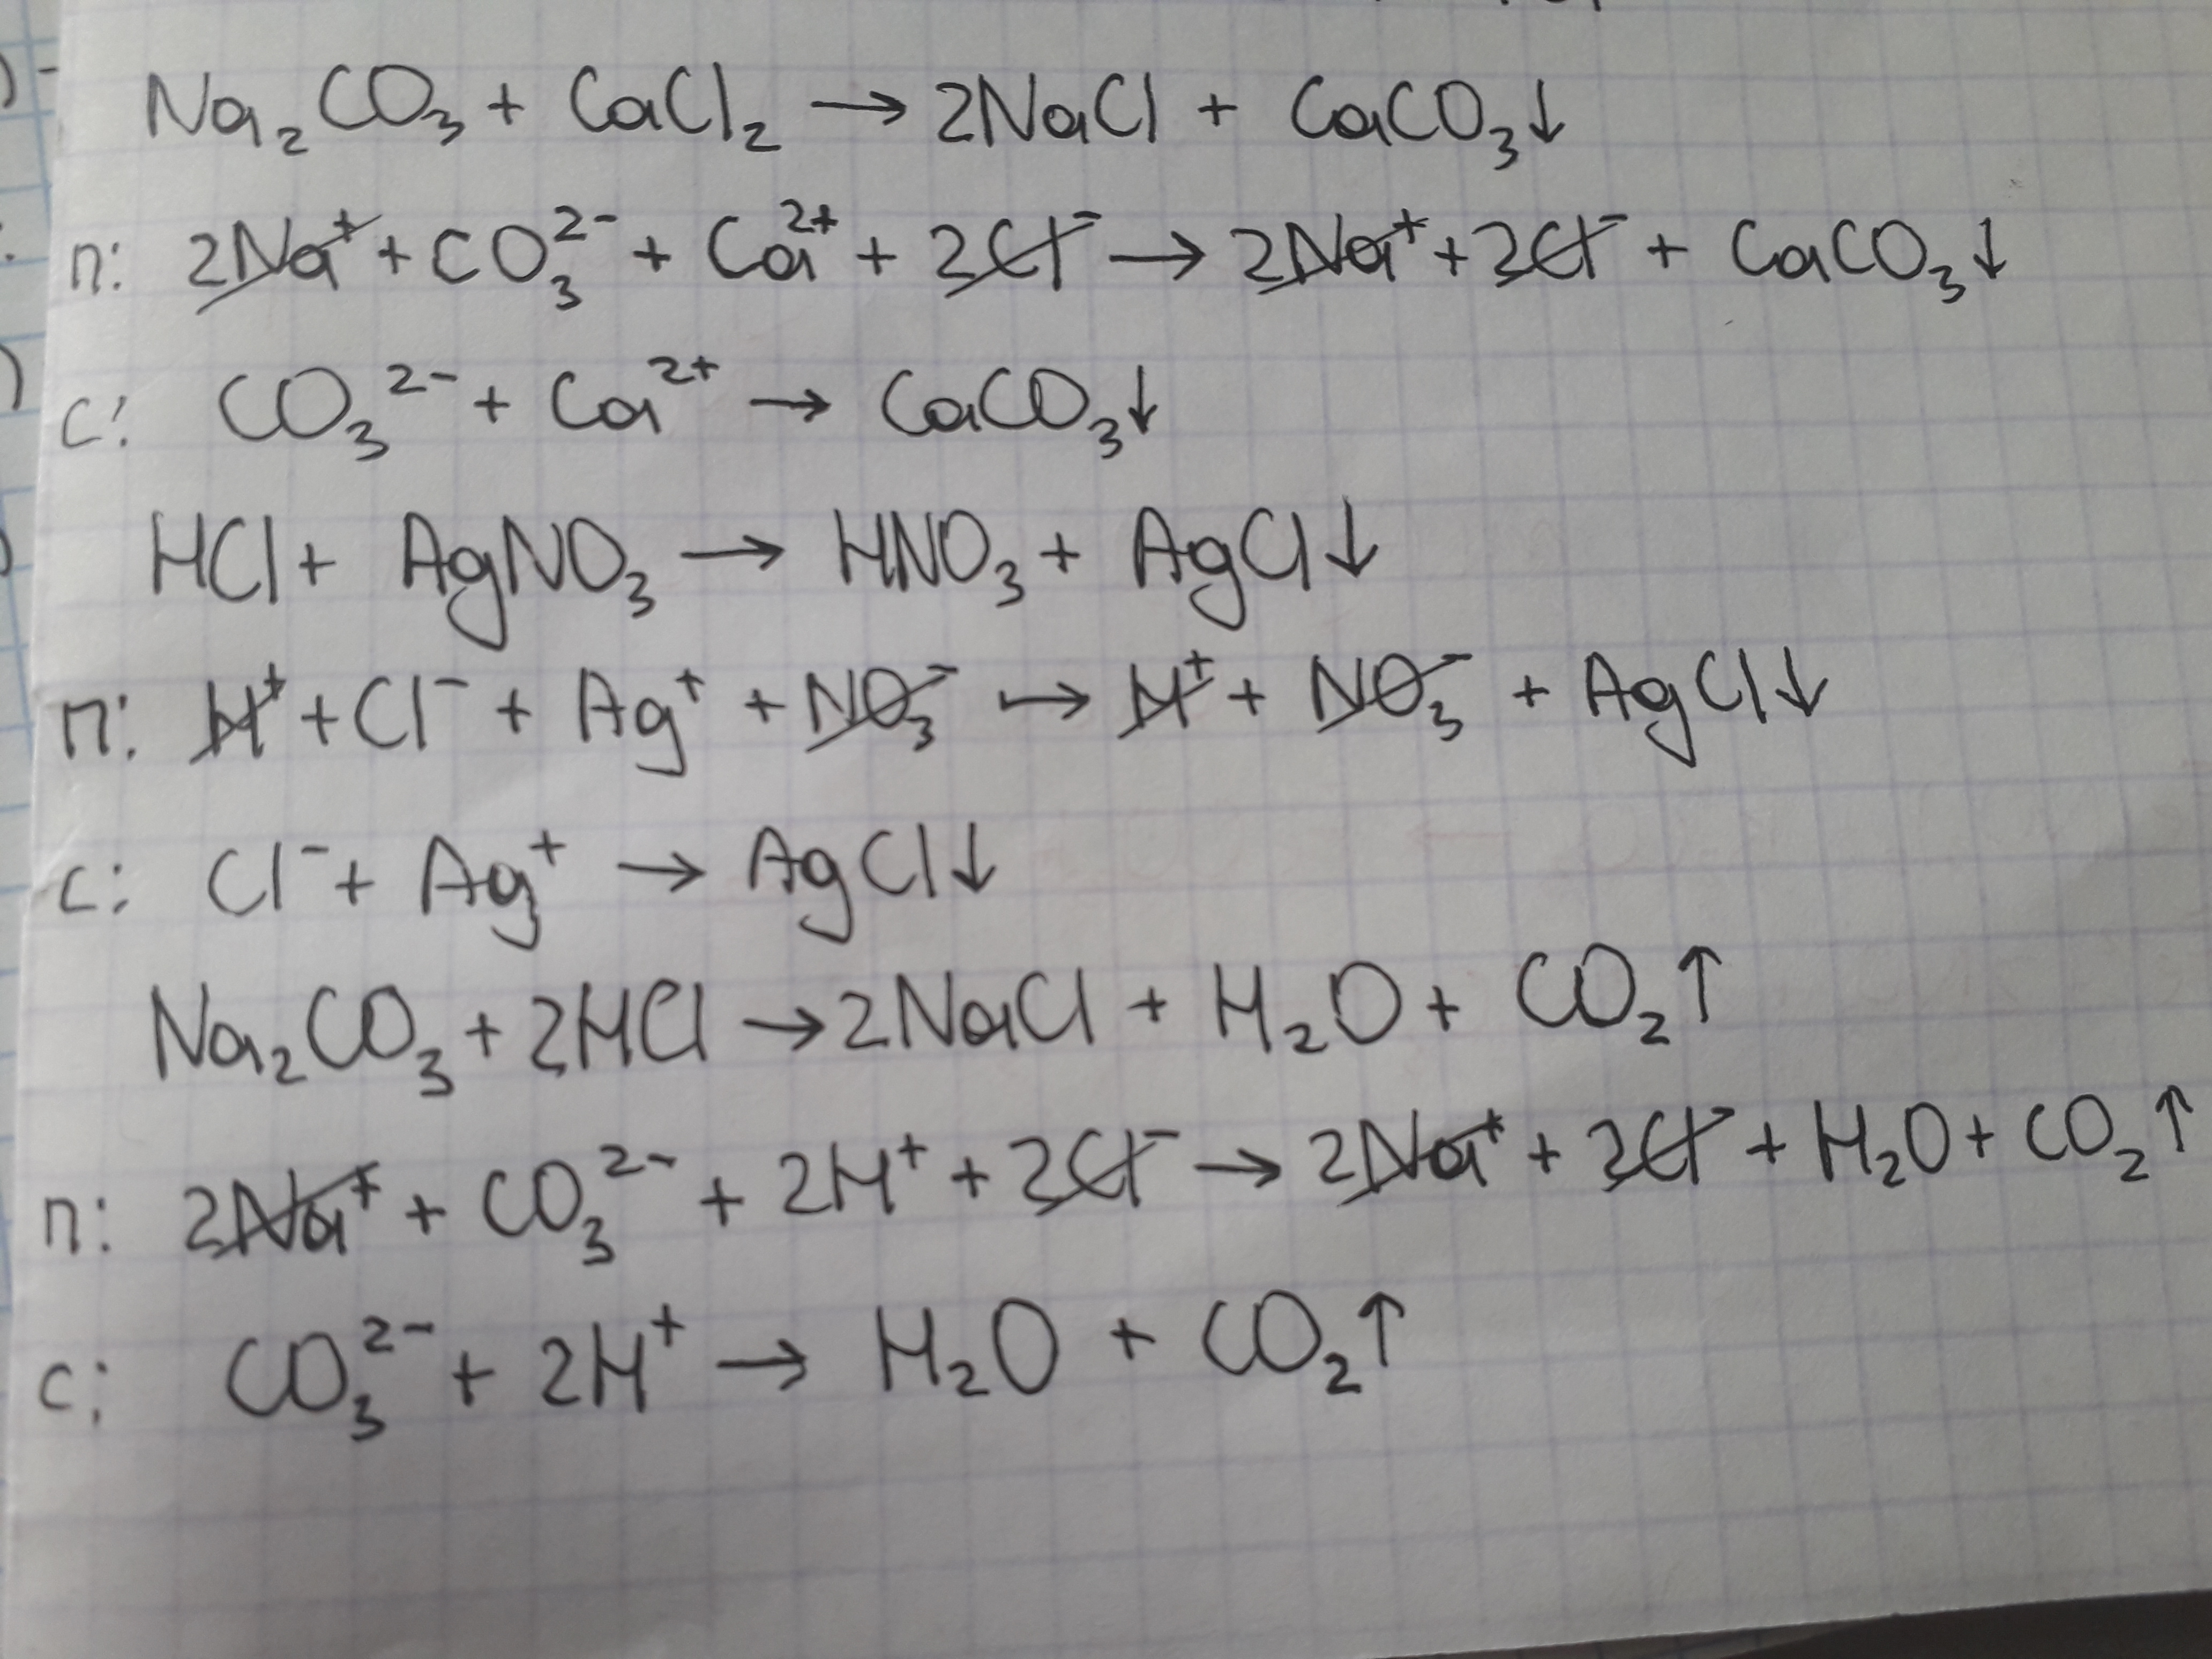 Na₂CO₃ + CaCl₂ → 2NaCl + CaCO₃↓
п: 2Na⁺ + CO₃²⁻ + Ca²⁺ + 2Cl⁻ → 2Na⁺ + 2Cl⁻ + CaCO₃↓
с: CO₃²⁻ + Ca²⁺ → CaCO₃↓
HCl + AgNO₃ → HNO₃ + AgCl↓
п: H⁺ + Cl⁻ + Ag⁺ + NO₃⁻ → H⁺ + NO₃⁻ + AgCl↓
с: Cl⁻ + Ag⁺ → AgCl↓
Na₂CO₃ + 2HCl → 2NaCl + H₂O + CO₂↑
п: 2Na⁺ + CO₃²⁻ + 2H⁺ + 2Cl⁻ → 2Na⁺ + 2Cl⁻ + H₂O + CO₂↑
с: CO₃²⁻ + 2H⁺ → H₂O + CO₂↑